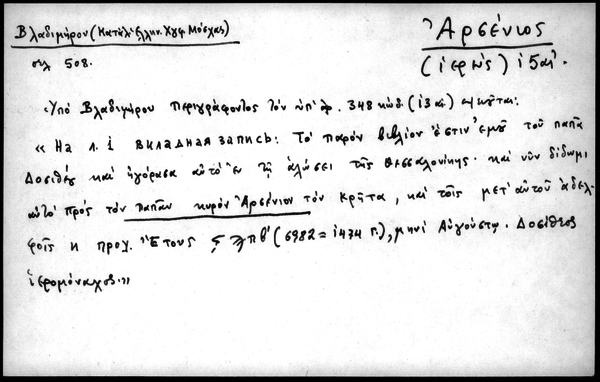 Βλαδιμήρου (Κατάλ. Ἑλλην. Χγφ. Μόσχας)
σελ 508.
Ἀρσένιος
(ἱερεὺς) ι5 αἰ.
Ὑπὸ Βλαδιμήρου περιγράφοντος τὸν ὑπ' ἀρ. 348 κώδ. (13 αἰ.)
« На л. 1 вкладная запись: Τὸ παρὸν βιβλίον ἐστὶν ἐμοῦ τοῦ παπᾶ
Δοσιθέου καὶ ἠγόρασα αὐτὸ ἐν τῇ ἁλώσει τῆς Θεσσαλονίκης. καὶ νῦν δίδωμι
αὐτὸ πρὸς τὸν παπᾶν κυρὸν Ἀρσένιον τὸν κρῆτα, καὶ τοῖς μετ' αὐτοῦ ἀδελ-
φοῖς κ προχ. Ἔτους ϛ ϡ π β' (6982 = 1474 г.), μηνὶ Αὐγούστῳ. Δοσίθεος
ἱερομόναχος.»